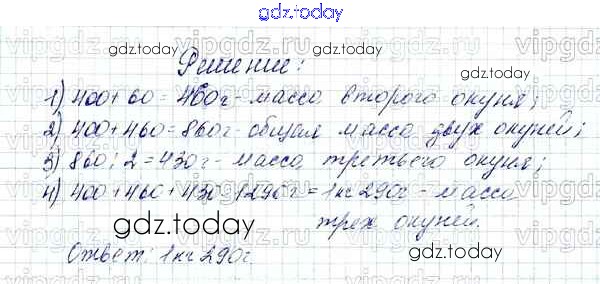 gdz.today
Решение:
1) 400+60=460г-масса второго окуня;
2) 400+460=860г-общая масса двух окуней;
3) 860:2=430г-масса третьего окуня;
4) 400+460+430=1290г=1кг290г-масса
трех окуней.
Ответ: 1кг290г.
gdz.today
gdz.today
gdz.today
gdz.today
gdz.today